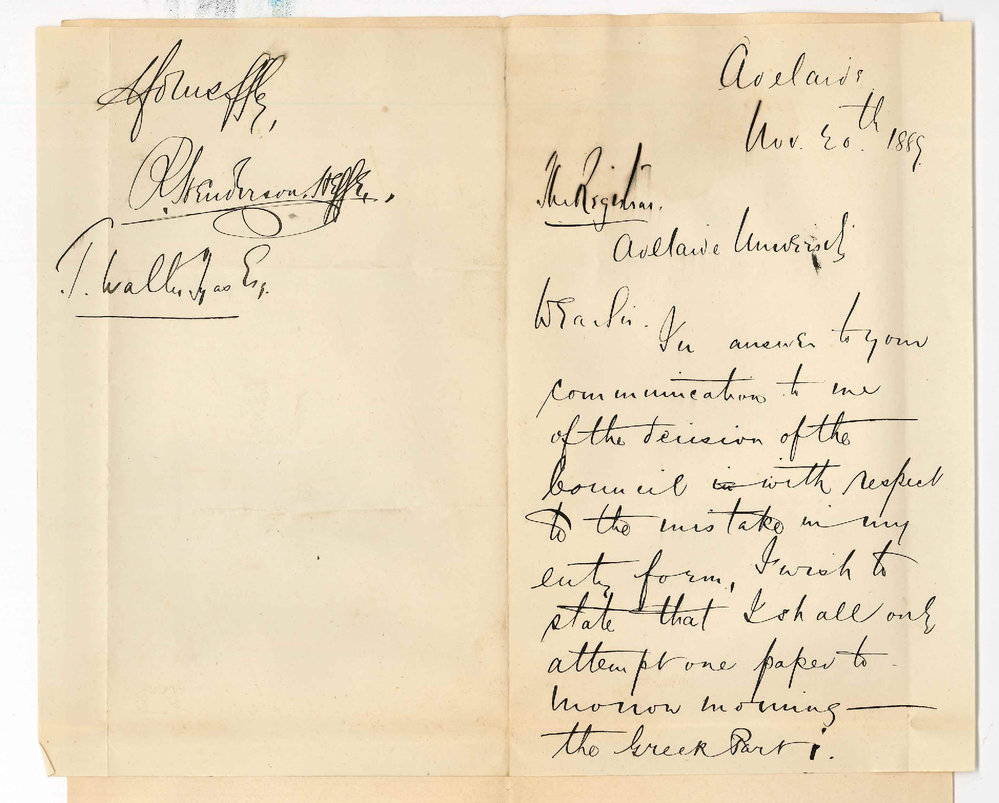 R. Henderson.
T. Walter Tyas Esq.
Adelaide,
Nov. 20th 1889.
The Registrar.
Adelaide University
Dear Sir.
In answer to your
communication to me
of the decision of the
Council in with respect
to the mistake in my
entry form, I wish to
state that I shall only
attempt one paper to
morrow morning —
the Greek Part i.